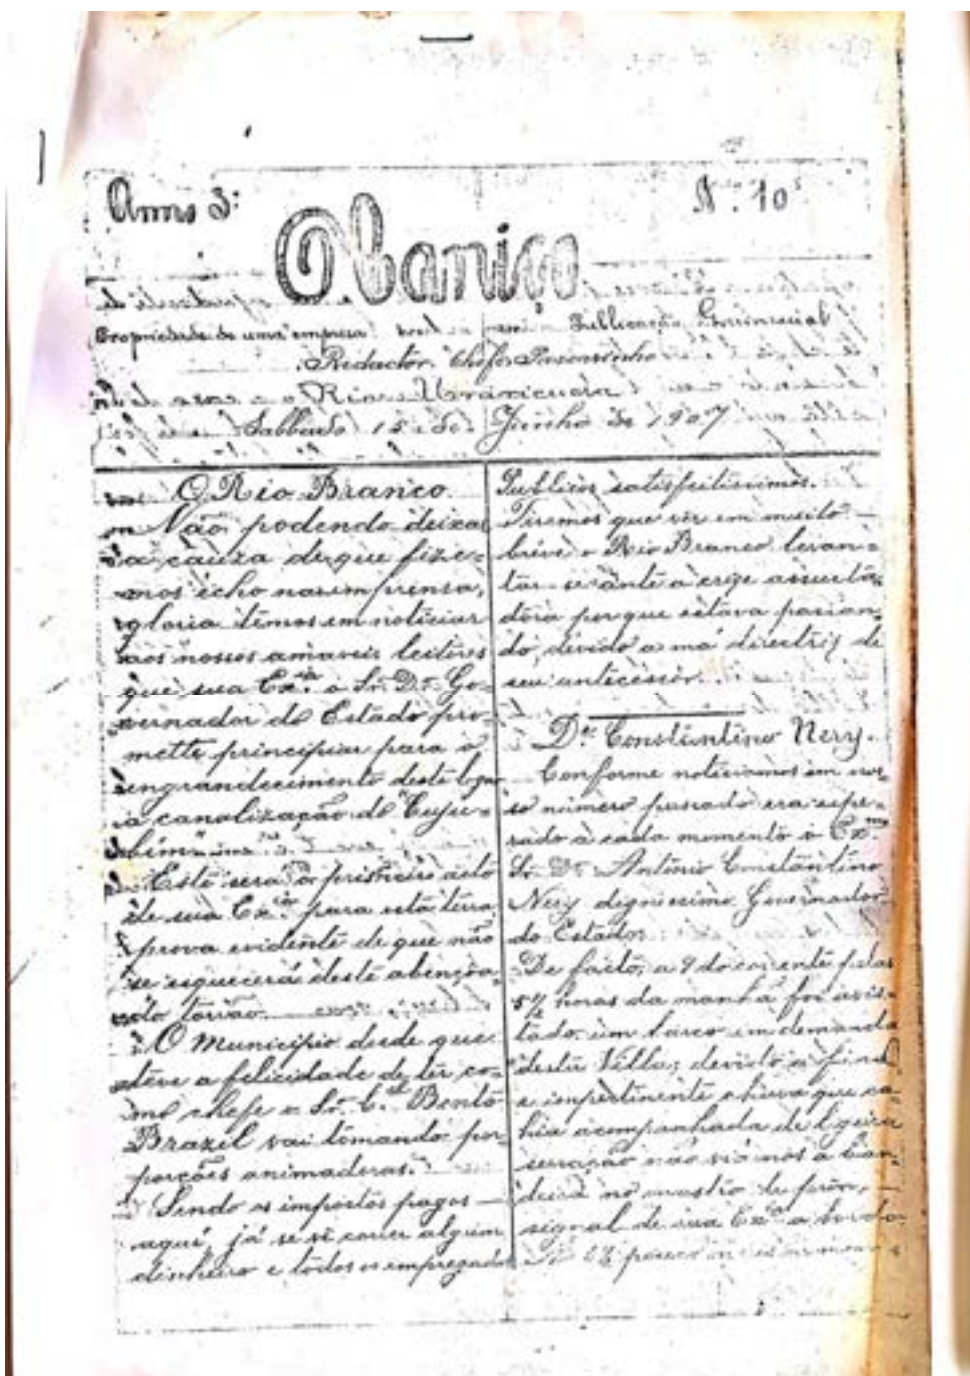 Anno 3º
Nº 10
O Caniço
Propriedade de uma empreza
Publicação Quinzenal
Redactor Chefe Passarinho
Rio Uraricuera
Sabbado 15 de Junho de 1907
O Rio Branco
Não podendo deixar
a cauza de que fize-
mos écho na imprensa,
gloria temos em noticiar
aos nossos amaveis leitores
que sua Exª o Sr. Dr. Go-
vernador do Estado pro-
mette principiar para o
engrandecimento deste logar
a canalização do "Cuju-
bim"
Este será o primeiro acto
de sua Exª para esta terra
prova evidente de que não
se esquecerá deste abençoa-
do torrão.
O Municipio desde que
teve a felicidade de ter co-
mo chefe o Sr. Cel Bento
Brazil vai tomando por
porções animadoras.
Sendo os impostos pagos
aqui, já se vê correr algum
dinheiro e todos os empregados
Publicos satisfeitissimos.
Tiremos que vêr em muito
bréve o Rio Branco levan-
tar-se ante a crize assusta-
dora porque estava passan-
do, devido a má directriz de
seu antecessor.
Dr. Constantino Nery.
Conforme noticiamos em nos-
so número passado era espe-
rado à cada momento o Exmo
Sr. Dr. Antonio Constantino
Nery dignissimo Governador
do Estado.
De facto, a 9 do corrente pelas
5½ horas da manhã foi avis-
tado um barco em demanda
desta Villa; devido a fina
e impertinente chuva que ca-
hia acompanhada de ligeira
serração não viamos a ban-
deira no mastro de prôa,
signal de sua Exª a bordo.
pouco